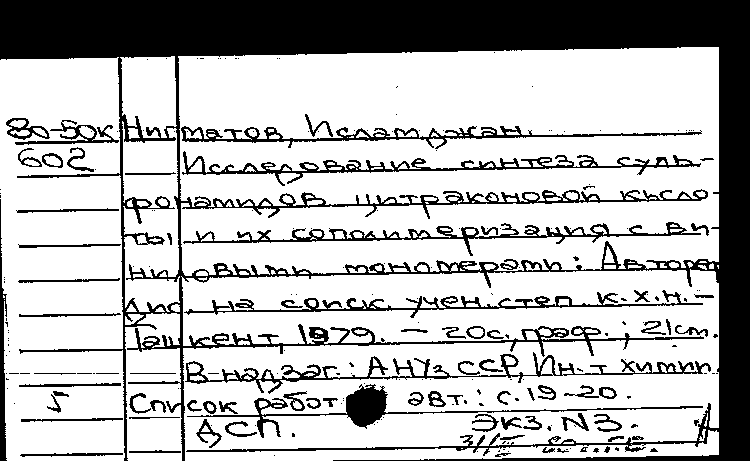 80-50к Нигматов, Исламджан.
602 Исследование синтеза суль-
фонамидов цитраконовой кисло-
ты и их сополимеризация с ви-
ниловыми мономерами: Автореф
дис. на соиск. учен. степ. к.х.н. –
Ташкент, 1979. – 20с., граф.; 21см.
В надзаг.: АН Уз ССР, Ин-т химии
5 Список работ авт.: с. 19-20.
ДСП. Экз. N3.